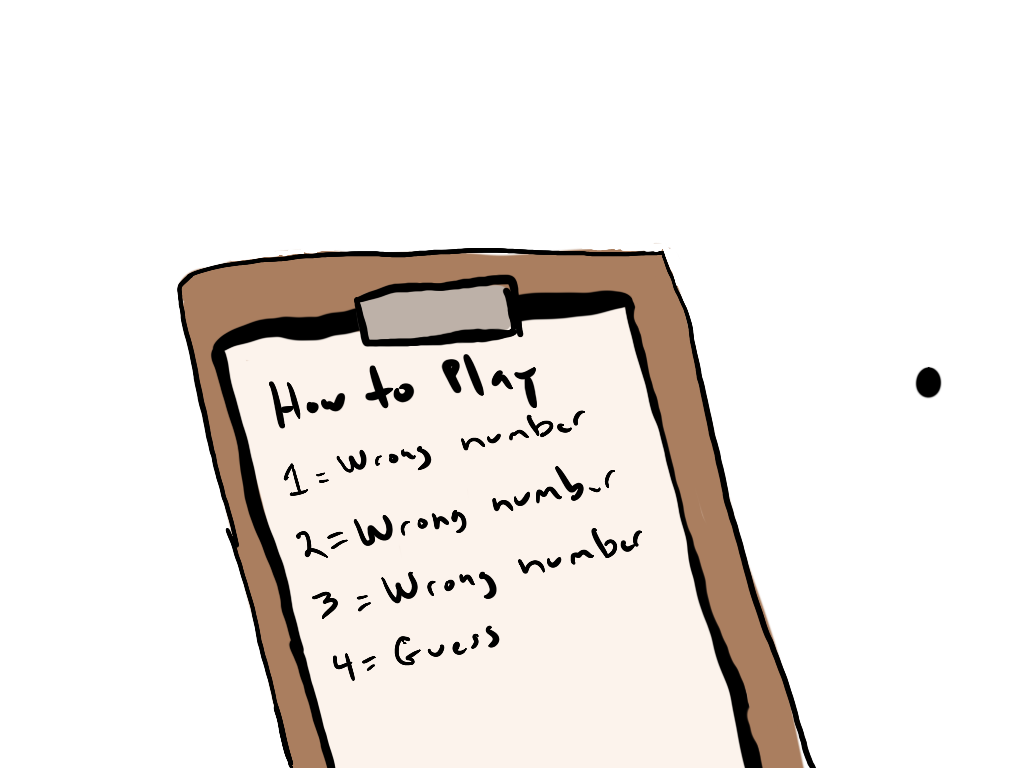 How to Play
1 = Wrong number
2 = Wrong number
3 = Wrong number
4 = Guess